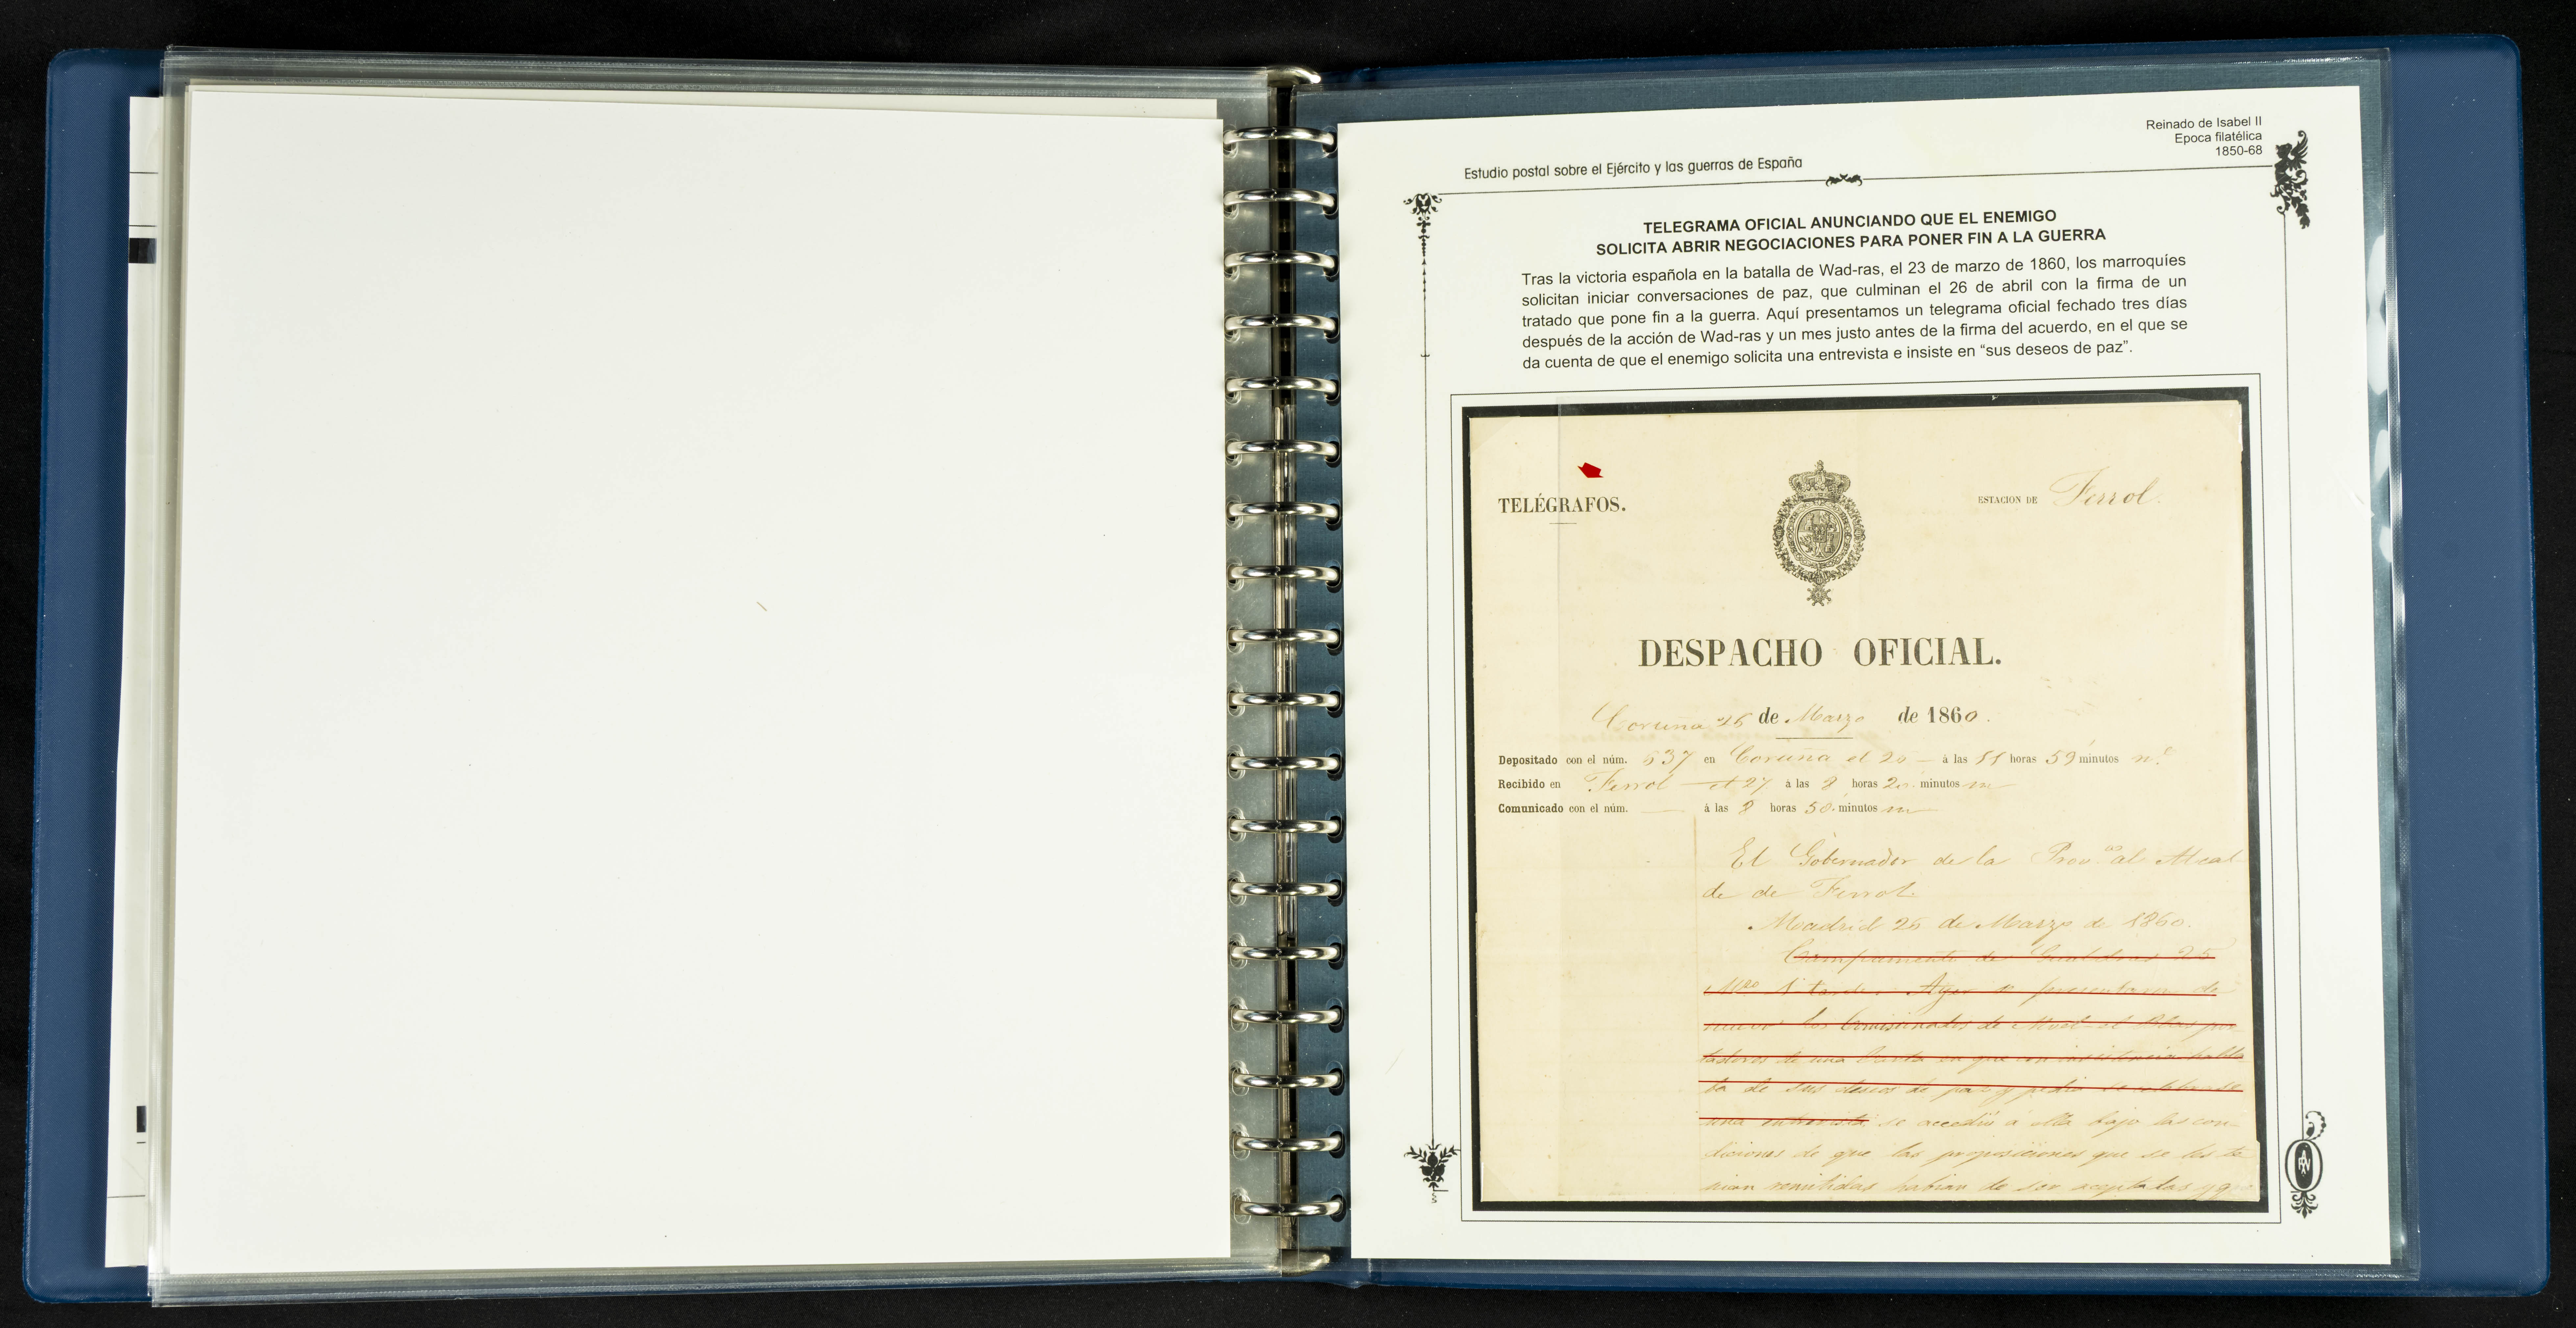 Reinado de Isabel II
Epoca filatélica
1850-68
Estudio postal sobre el Ejército y las guerras de España
TELEGRAMA OFICIAL ANUNCIANDO QUE EL ENEMIGO
SOLICITA ABRIR NEGOCIACIONES PARA PONER FIN A LA GUERRA
Tras la victoria española en la batalla de Wad-ras, el 23 de marzo de 1860, los marroquíes
solicitan iniciar conversaciones de paz, que culminan el 26 de abril con la firma de un
tratado que pone fin a la guerra. Aquí presentamos un telegrama oficial fechado tres días
después de la acción de Wad-ras y un mes justo antes de la firma del acuerdo, en el que se
da cuenta de que el enemigo solicita una entrevista e insiste en “sus deseos de paz”.
TELÉGRAFOS.
ESTACION DE Ferrol
DESPACHO OFICIAL.
Coruña 26 de Marzo de 1860.
Depositado con el núm. 637 en Coruña el à las 11 horas 59 minutos
Recibido en Ferrol el 27 à las horas 20 minutos m
Comunicado con el núm. à las horas 50 minutos m
El Gobernador de la Prov.ª al Alcal
de de Ferrol.
Madrid 26 de Marzo de 1860.
Campamento de 25
Mzo tarde. Ayer se presentaron de
nuevo los Comisionados de Muel el Abas por
tadores de una Carta en que con insistencia habla
ba de sus deseos de paz y pedia se celebrase
una entrevista; se accedió à ella bajo las con-
diciones de que las proposiciones que se les te
nian remitidas habian de ser aceptadas y q